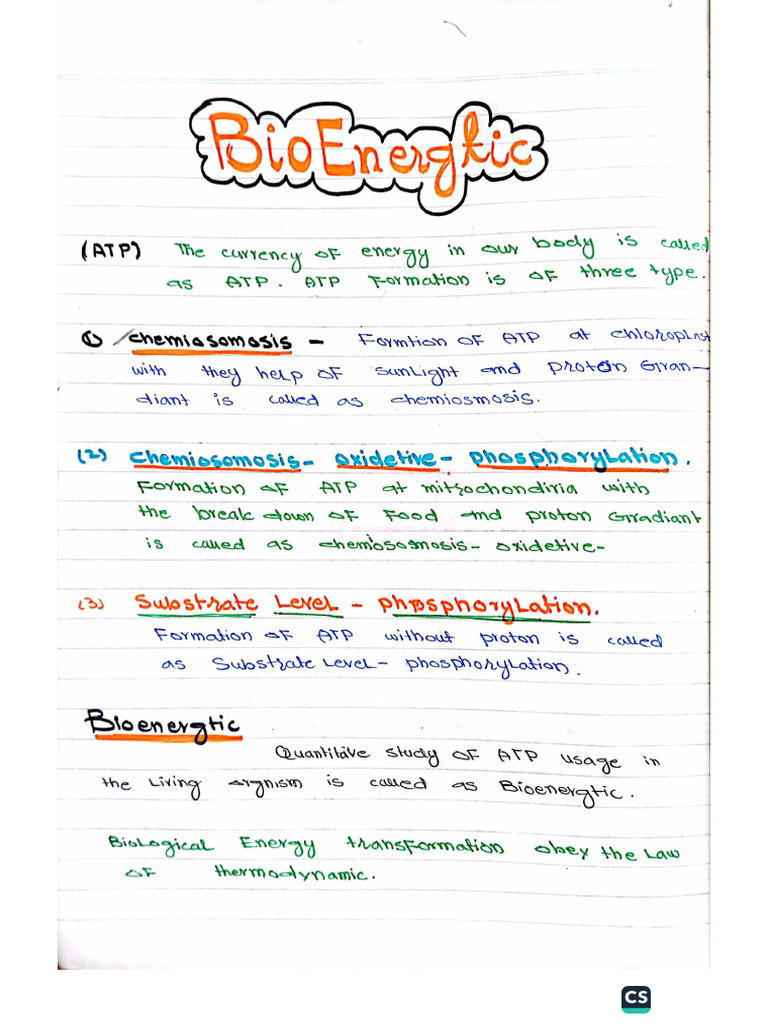 BioEnergtic
(ATP) The currency of energy in our body is called
as ATP. ATP Formation is of three type.
① chemiosomosis – Formtion of ATP at chloroplast
with they help of sunlight and proton Gran–
diant is called as chemiosmosis.
(2) chemiosomosis – oxidetive – phosphorylation.
Formation of ATP at mitrochondiria with
the break down of Food and proton Grradiant
is called as chemiososmosis – oxidetive –
(3) Substrate Level – phosphorylation.
Formation of ATP without proton is called
as Substrate level – phosphorylation.
Bioenergtic
Quantitive study of ATP usage in
the Living orgnism is called as Bioenergtic.
Biological Energy transformation obey the Law
of thermodynamic.
CS